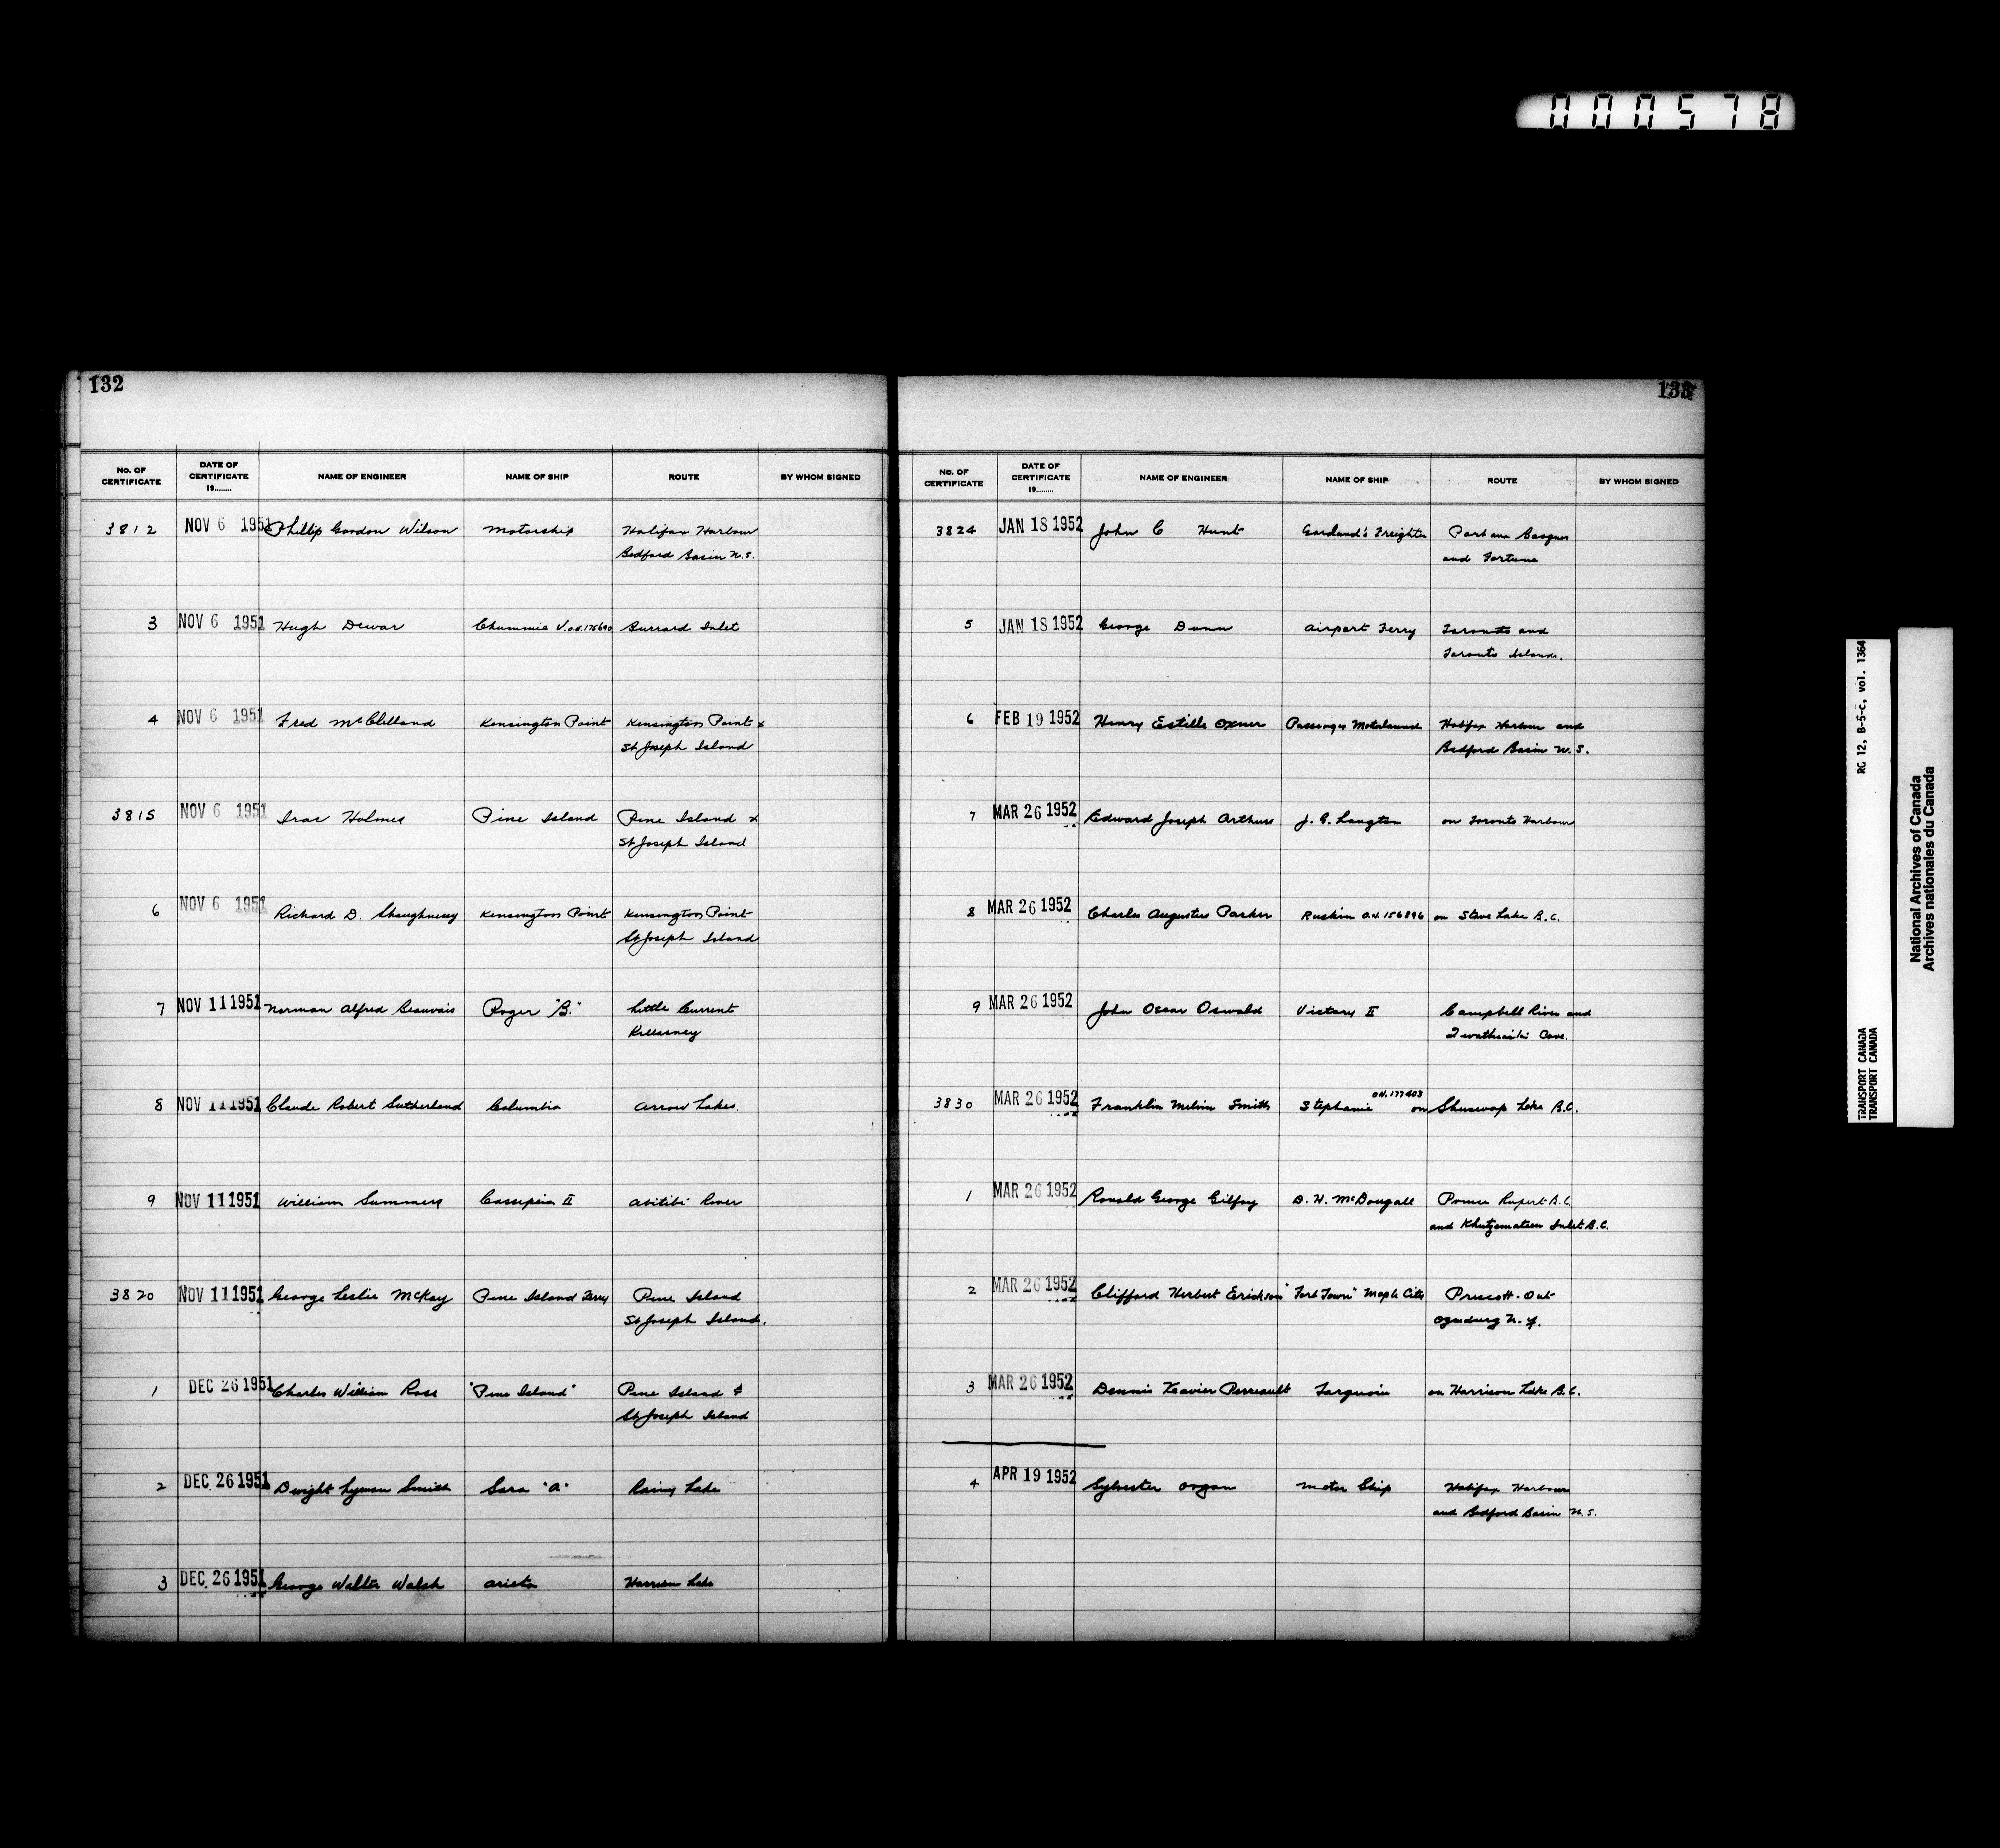 000578
132
No. OF CERTIFICATE DATE OF CERTIFICATE 19........ NAME OF ENGINEER NAME OF SHIP ROUTE BY WHOM SIGNED
3812 NOV 6 1951 Phillip Gordon Wilson Motorship Halifax Harbour
Bedford Basin N.S.
3 NOV 6 1951 Hugh Dewar Chummie V. O.N. 175690 Burrard Inlet
4 NOV 6 1951 Fred McClelland Kensington Point Kensington Point &
St Joseph Island
3815 NOV 6 1951 Holmes Pine Island Pine Island &
St Joseph Island
6 NOV 6 1951 Richard D. Shaughnessy Kensington Point Kensington Point
St Joseph Island
7 NOV 11 1951 Norman Alfred Beauvais Roger "B." Little Current
Killarney
8 NOV 11 1951 Claude Robert Sutherland Columbia Arrow Lakes.
9 NOV 11 1951 William Summers Cassepeia II Abitibi River
3820 NOV 11 1951 George Leslie McKay Pine Island Ferry Pine Island
St Joseph Island.
1 DEC 26 1951 Charles William Rose "Pine Island" Pine Island &
St Joseph Island
2 DEC 26 1951 Dwight Lyman Smith Sara "A" Rainy Lake
3 DEC 26 1951 George Walter Walsh Arista Harrison Lake
133
No. OF CERTIFICATE DATE OF CERTIFICATE 19........ NAME OF ENGINEER NAME OF SHIP ROUTE BY WHOM SIGNED
3824 JAN 18 1952 John C Hunt Garland's Freighter Port aux Basques
and Fortune
5 JAN 18 1952 George Dunn Airport Ferry Toronto and
Toronto Islands.
6 FEB 19 1952 Henry Estille Oxner Passenger Motorlaunch Halifax Harbour and
Bedford Basin N.S.
7 MAR 26 1952 Edward Joseph Arthurs J. C. Langton on Toronto Harbour
8 MAR 26 1952 Charles Augustus Parker Ruskin O.N. 156896 on Stave Lake B.C.
9 MAR 26 1952 John Oscar Oswald Victory II Campbell River and
Cove.
3830 MAR 26 1952 Franklin Melvin Smith Stephanie O.N. 177403 on Shuswap Lake B.C.
1 MAR 26 1952 Ronald George Gilfoy D. H. McDougall Prince Rupert B.C.
and Khutzemateen Inlet B.C.
2 MAR 26 1952 Clifford Herbert Erickson "Fort Town" Maple City Prescott - Ont
N.Y.
3 MAR 26 1952 Dennis Xavier Perreault on Harrison Lake B.C.
4 APR 19 1952 Sylvester Organ Motor Ship Halifax Harbour
and Bedford Basin N.S.
RG 12, B-5-C, vol. 1364
TRANSPORT CANADA
TRANSPORT CANADA
National Archives of Canada
Archives nationales du Canada